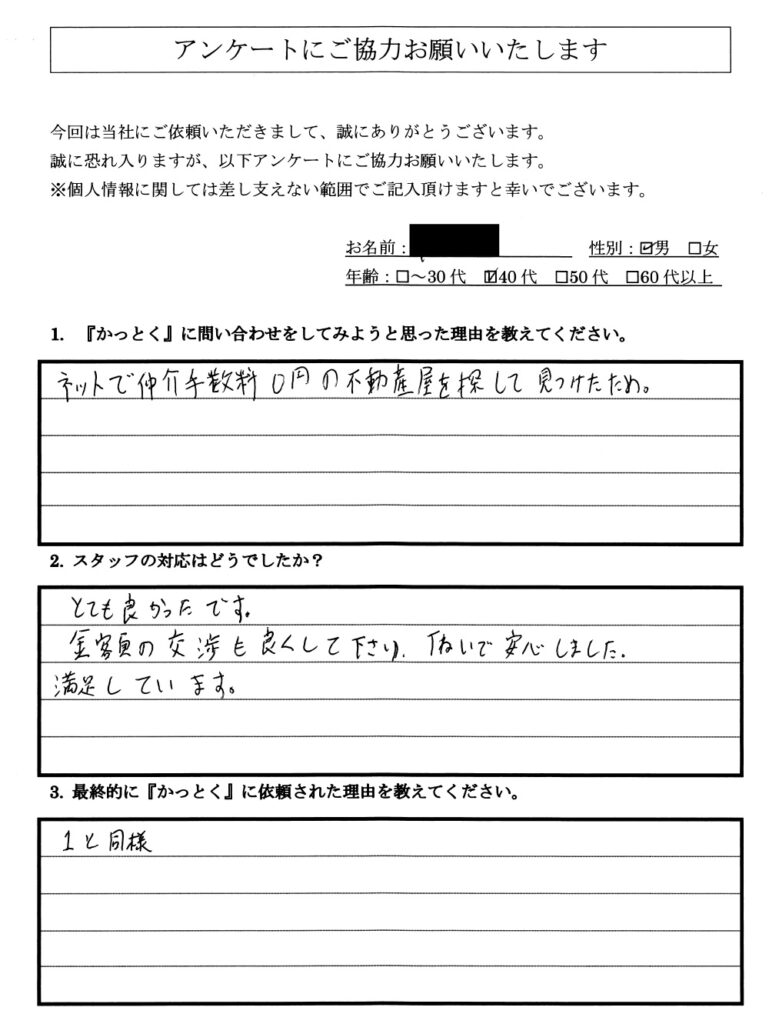 アンケートにご協力お願いいたします
今回は当社にご依頼いただきまして、誠にありがとうございます。
誠に恐れ入りますが、以下アンケートにご協力お願いいたします。
※個人情報に関しては差し支えない範囲でご記入頂けますと幸いでございます。
お名前： 性別：☑男 □女
年齢：□～30代 ☑40代 □50代 □60代以上
1. 『かっとく』に問い合わせをしてみようと思った理由を教えてください。
ネットで仲介手数料0円の不動産屋を探して見つけたため。
2. スタッフの対応はどうでしたか？
とても良かったです。
金額の交渉も良くして下さり、ていねいで安心しました。
満足しています。
3. 最終的に『かっとく』に依頼された理由を教えてください。
1と同様